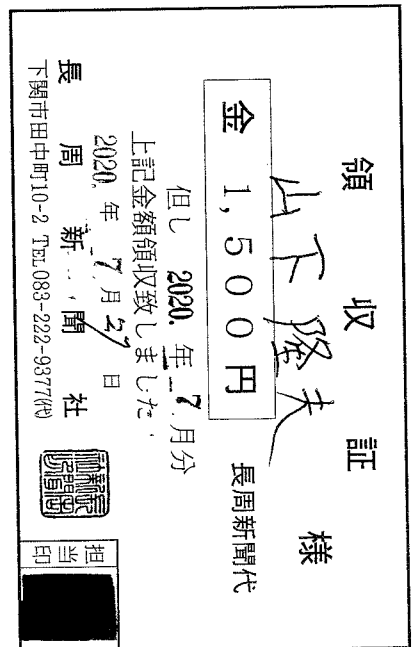 領収証
山下隆夫 様
金 1,500円
長周新聞代
但し 2020.年 7.月分
上記金額領収致しました.
2020.年 7月27日
長周新聞社
下関市田中町10-2 TEL083-222-9377㈹
担当印